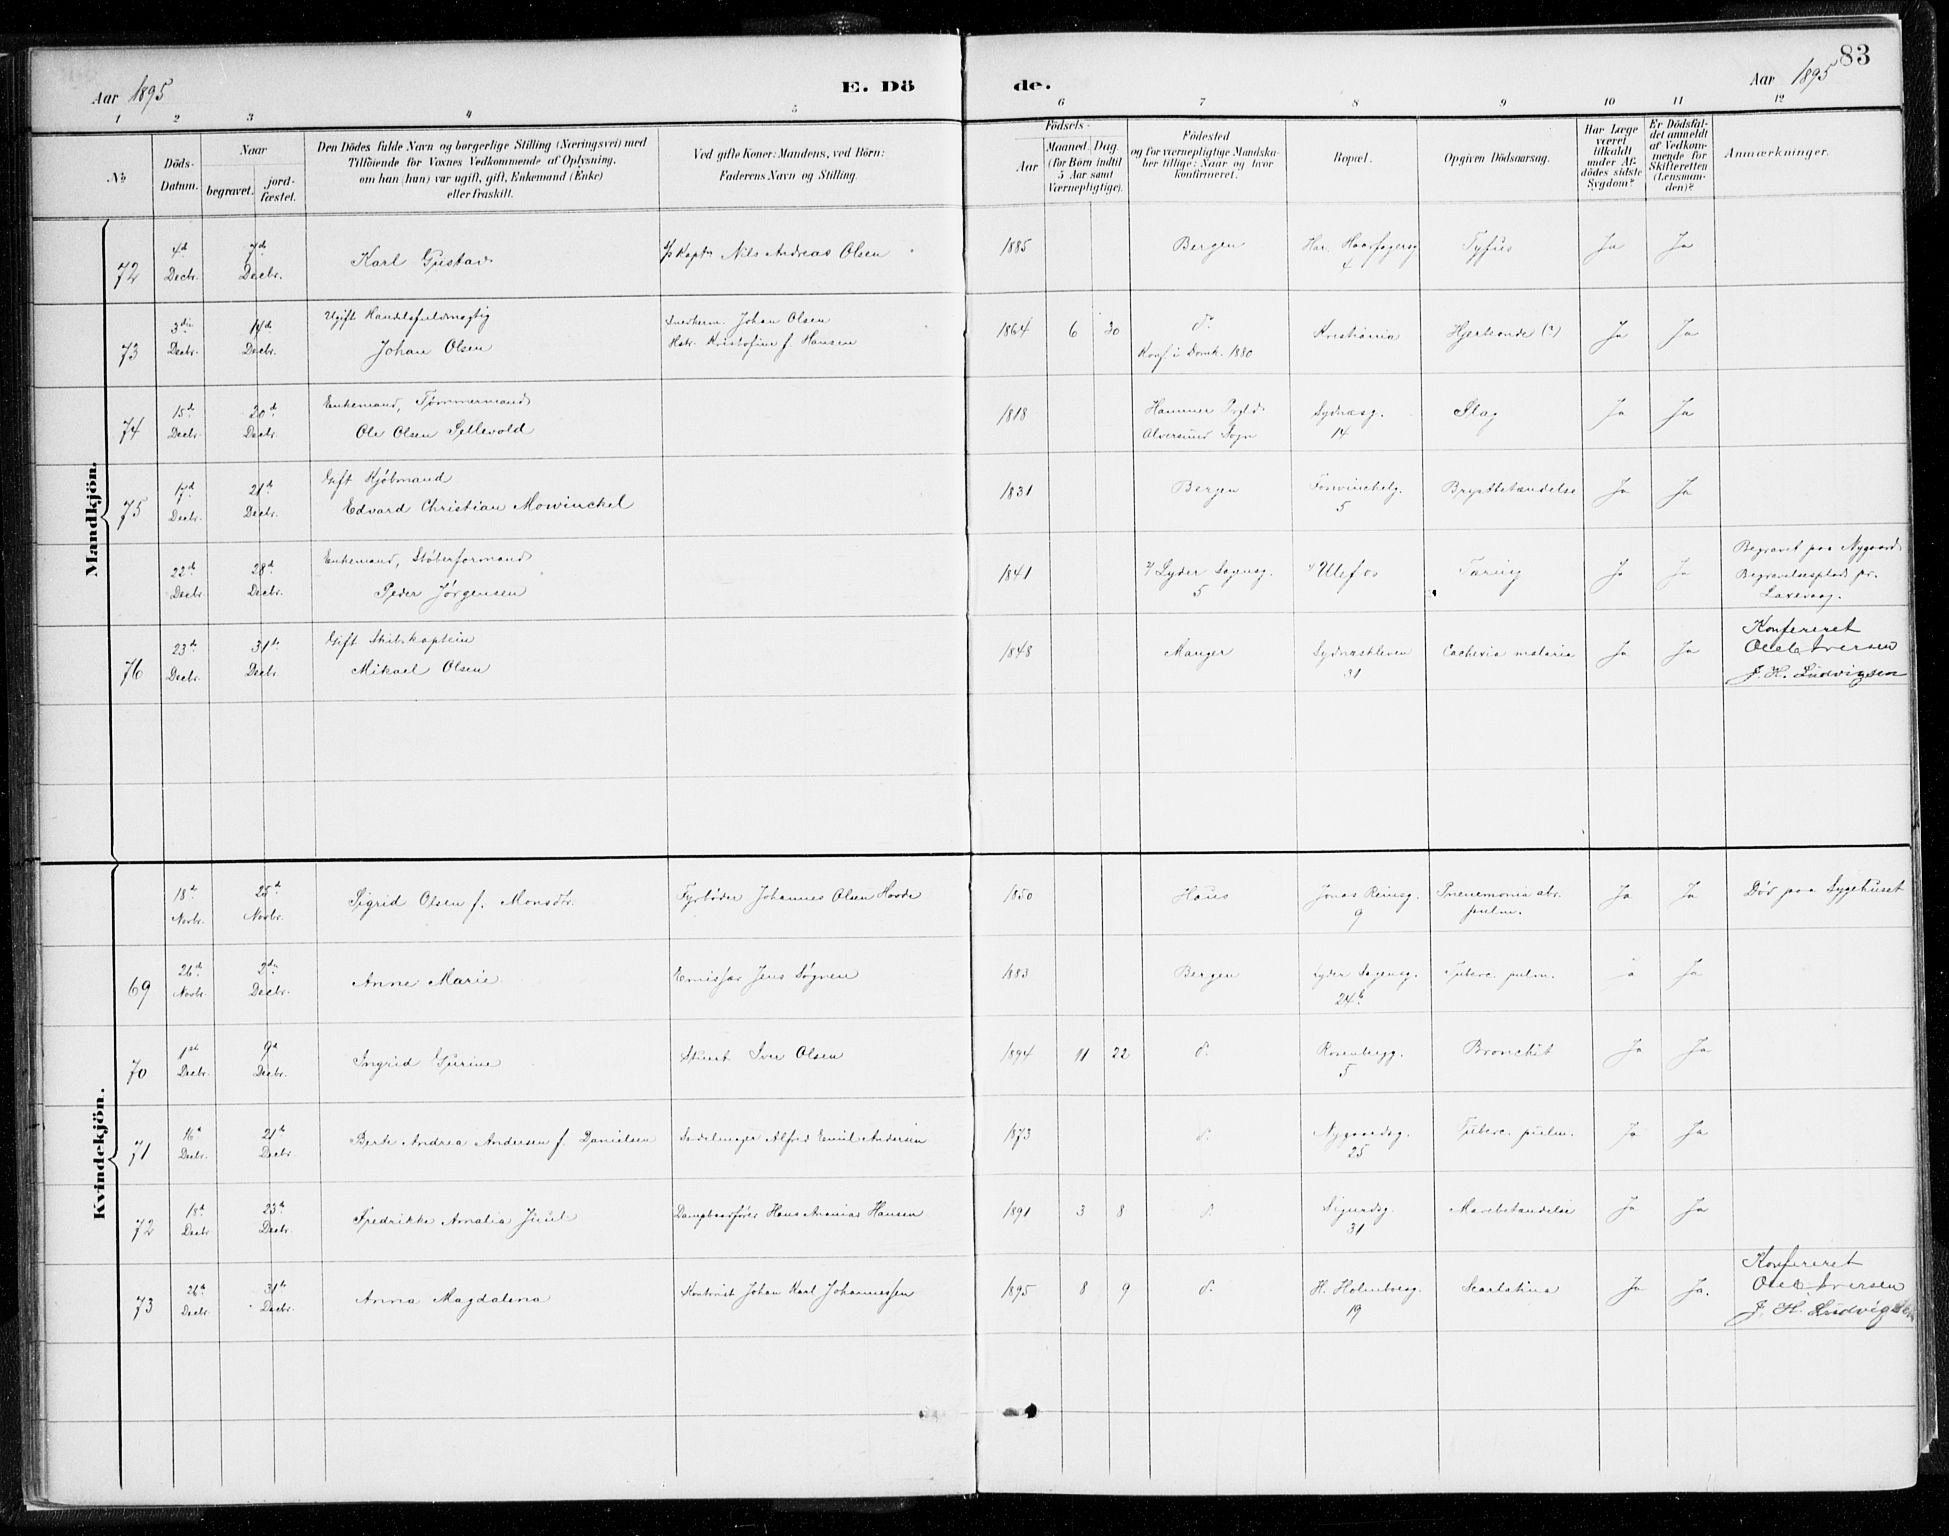 83
Aar 1895
E. Dö
de.
Aar 1895
1 2 3 4 5 6 7 8 9 10 11 12
No
Döds-
Datum.
Naar
begravet.
jord-
fæstet.
Den Dödes fulde Navn og borgerlige Stilling (Næringsvei) med
Tilföiende for Voxnes Vedkommende af Oplysning,
om han (hun) var ugift, gift, Enkemand (Enke)
eller fraskilt.
Ved gifte Koner: Mandens, ved Börn:
Faderens Navn og Stilling.
Födsels-
Aar
Maaned. Dag.
(for Børn indtil
5 Aar samt
Værnepligtige).
Födested
og for værnepligtige Mandska-
ber tillige: Naar og hvor
konfirmeret.
Bopæl.
Opgiven Dödsaarsag.
Har Læge
været
tilkaldt
under Af-
dödes sidste
Sygdom?
Er Dödsfal-
det anmeldt
af Vedkom-
mende for
Skifteretten
(Lensman-
den)?
Anmærkninger.
Mandkjön.
72 4d Decbr. 7d Decbr. Karl Gustav Kapt. Nils Andreas Olsen 1885 Bergen Har. Haarfagersg 4 Tyfus Ja Ja
73 3die Decbr. 14d Decbr. Ugift Handelsfuldmægtig
Johan Olsen Snedkerm. Johan Olsen
Hstr. Kristofine f. Hansen 1864 6 30 do.
Konf. i Domk. 1880 Kristiania Hjerteonde (?) Ja Ja
74 15de Decbr. 20d Decbr. Enkemand, Tømmermand
Ole Olsen Sellevold 1818 Hammer Prgld.
Alversund Sogn Sydnæsg. 14 Slag Ja Ja
75 17d Decbr. 21d Decbr. Gift Kjøbmand
Edvard Christian Mowinckel 1831 Bergen 5 Brystbetændelse Ja Ja
22d Decbr. 28d Decbr. Enkemand, Støberformand
Peder Jørgensen 1841 Lyder Sagensg. 5 Ulefos Tæring Ja Ja Begravet paa Nygaards
Begravelsesplads pr.
Laxevaag.
76 23de Decbr. 31te Decbr. Gift Skibskaptein
Mikael Olsen 1848 Manger Sydnæskleven 31 Cachexia malaria Ja Ja Konfereret
Ole Iversen
J. H. Ludvigsen
Kvindekjön.
18de Novbr. 25d Novbr. Sigrid Olsen f. Monsdtr. Fyrbøder Johannes Olsen Hovde 1850 Haus Jonas Reinsg. 9 Pneumonia abs.
pulm. Ja Ja Død paa Sygehuset
69 26d Novbr. 2den Decbr. Anne Marie Emissær Jens Søgnen 1883 Bergen Lyder Sagensg. 24b Tuberc. pulm. Ja Ja
70 1ste Decbr. 9d Decbr. Ingrid Gurine Stuert Iver Olsen 1894 11 22 do. Rosenbergg. 5 Bronchit Ja Ja
71 16d Decbr. 21de Decbr. Berte Andrea Andersen f. Danielsen Sadelmager Alfred Emil Andersen 1873 do. Nygaardsg. 25 Tuberc. pulm. Ja Ja
72 18d Decbr. 23de Decbr. Fredrikke Amalia Juul Dampbaadfører Hans Ananias Hansen 1891 3 8 do. Sigurdsg. 31 Mavebetændelse Ja Ja
73 26de Decbr. 31te Decbr. Anna Magdalena Kontorist Johan Karl Johannessen 1895 8 9 do. H. Holmboesg. 19 Scarlatina Ja Ja. Konfereret
Ole Iversen
J. H. Ludvigsen